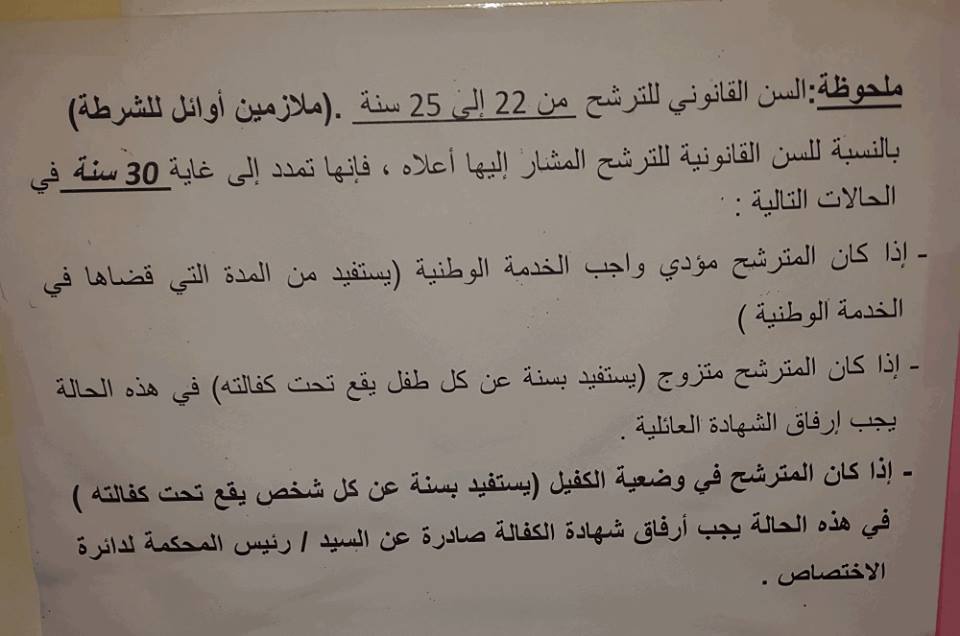 ملحوظة:السن القانوني للترشح من 22 إلى 25 سنة .(ملازمين أوائل للشرطة)
بالنسبة للسن القانونية للترشح المشار إليها أعلاه ، فإنها تمدد إلى غاية 30 سنة في
الحالات التالية :
- إذا كان المترشح مؤدي واجب الخدمة الوطنية (يستفيد من المدة التي قضاها في
الخدمة الوطنية )
- إذا كان المترشح متزوج (يستفيد بسنة عن كل طفل يقع تحت كفالته) في هذه الحالة
يجب إرفاق الشهادة العائلية .
- إذا كان المترشح في وضعية الكفيل (يستفيد بسنة عن كل شخص يقع تحت كفالته )
في هذه الحالة يجب أرفاق شهادة الكفالة صادرة عن السيد / رئيس المحكمة لدائرة
الاختصاص .